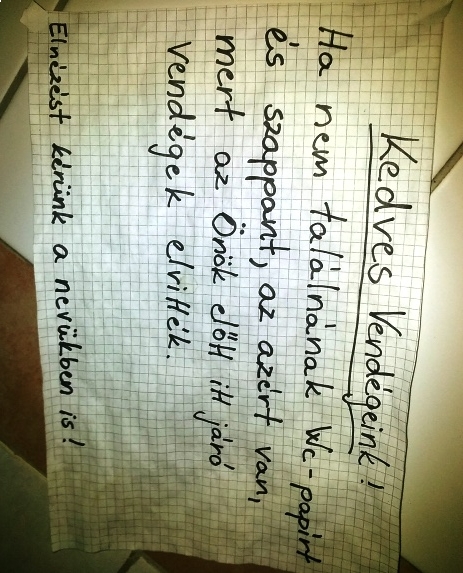 Kedves Vendégeink!
Ha nem találnának Wc-papírt
és szappant, az azért van,
mert az Önök előtt itt járó
vendégek elvitték.
Elnézést kérünk a nevükben is!